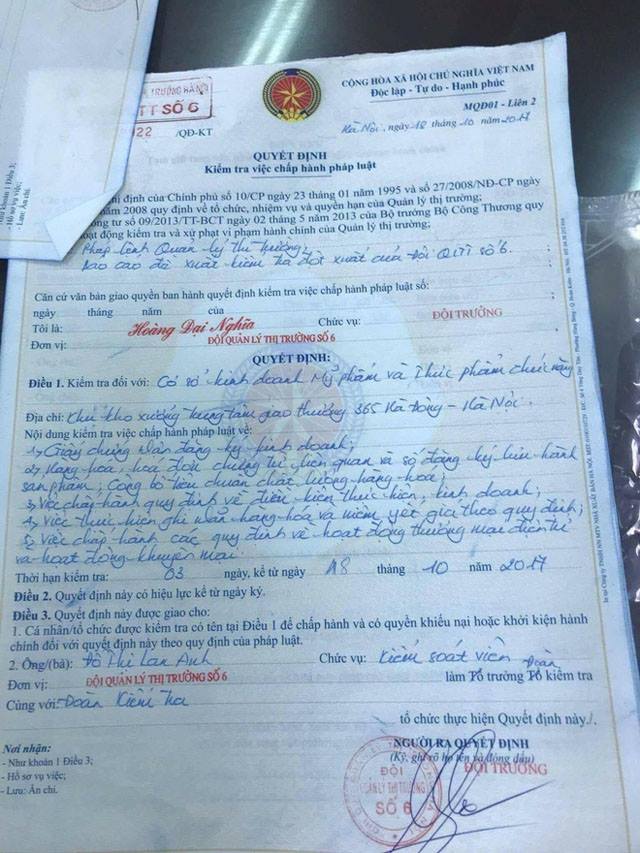 TRƯỜNG HÀ NỘI
TT SỐ 6
22 /QĐ-KT
CỘNG HÒA XÃ HỘI CHỦ NGHĨA VIỆT NAM
Độc lập - Tự do - Hạnh phúc
MQĐ01 - Liên 2
Hà Nội, ngày 18 tháng 10 năm 2017
QUYẾT ĐỊNH
Kiểm tra việc chấp hành pháp luật
định của Chính phủ số 10/CP ngày 23 tháng 01 năm 1995 và số 27/2008/NĐ-CP ngày
năm 2008 quy định về tổ chức, nhiệm vụ và quyền hạn của Quản lý thị trường;
tư số 09/2013/TT-BCT ngày 02 tháng 5 năm 2013 của Bộ trưởng Bộ Công Thương quy
động kiểm tra và xử phạt vi phạm hành chính của Quản lý thị trường;
Pháp lệnh Quản lý thị trường;
Báo cáo đề xuất kiểm tra đột xuất của Đội QLTT số 6.
Căn cứ văn bản giao quyền ban hành quyết định kiểm tra việc chấp hành pháp luật số:
ngày tháng năm của
Tôi là: Hoàng Đại Nghĩa Chức vụ: ĐỘI TRƯỞNG
Đơn vị: ĐỘI QUẢN LÝ THỊ TRƯỜNG SỐ 6
QUYẾT ĐỊNH:
Điều 1. Kiểm tra đối với: Cơ sở kinh doanh Mỹ phẩm và Thực phẩm chức năng
Địa chỉ: Khu kho xưởng trung tâm giao thương 365 Hà Đông - Hà Nội.
Nội dung kiểm tra việc chấp hành pháp luật về:
1, Giấy chứng nhận đăng ký kinh doanh;
2, Hàng hóa, hóa đơn chứng từ liên quan và số đăng ký lưu hành
sản phẩm; Công bố tiêu chuẩn chất lượng hàng hóa;
3, Việc chấp hành quy định về điều kiện thực hiện, kinh doanh;
4, Việc thực hiện ghi nhãn hàng hóa và niêm yết giá theo quy định;
5, Việc chấp hành các quy định về hoạt động thương mại điện tử
và hoạt động khuyến mại.
Thời hạn kiểm tra: 03 ngày, kể từ ngày 18 tháng 10 năm 2017
Điều 2. Quyết định này có hiệu lực kể từ ngày ký.
Điều 3. Quyết định này được giao cho:
1. Cá nhân/tổ chức được kiểm tra có tên tại Điều 1 để chấp hành và có quyền khiếu nại hoặc khởi kiện hành
chính đối với quyết định này theo quy định của pháp luật.
2. Ông/(bà): Đỗ Thị Lan Anh Chức vụ: Kiểm soát viên
Đơn vị: ĐỘI QUẢN LÝ THỊ TRƯỜNG SỐ 6 làm Tổ trưởng Tổ kiểm tra
Đoàn
Cùng với: Đoàn Kiểm tra
tổ chức thực hiện Quyết định này./.
Nơi nhận:
- Như khoản 1 Điều 3;
- Hồ sơ vụ việc;
- Lưu: Ấn chỉ.
NGƯỜI RA QUYẾT ĐỊNH
(Ký, ghi rõ họ tên và đóng dấu)
ĐỘI TRƯỞNG
ĐỘI
QUẢN LÝ THỊ TRƯỜNG
SỐ 6